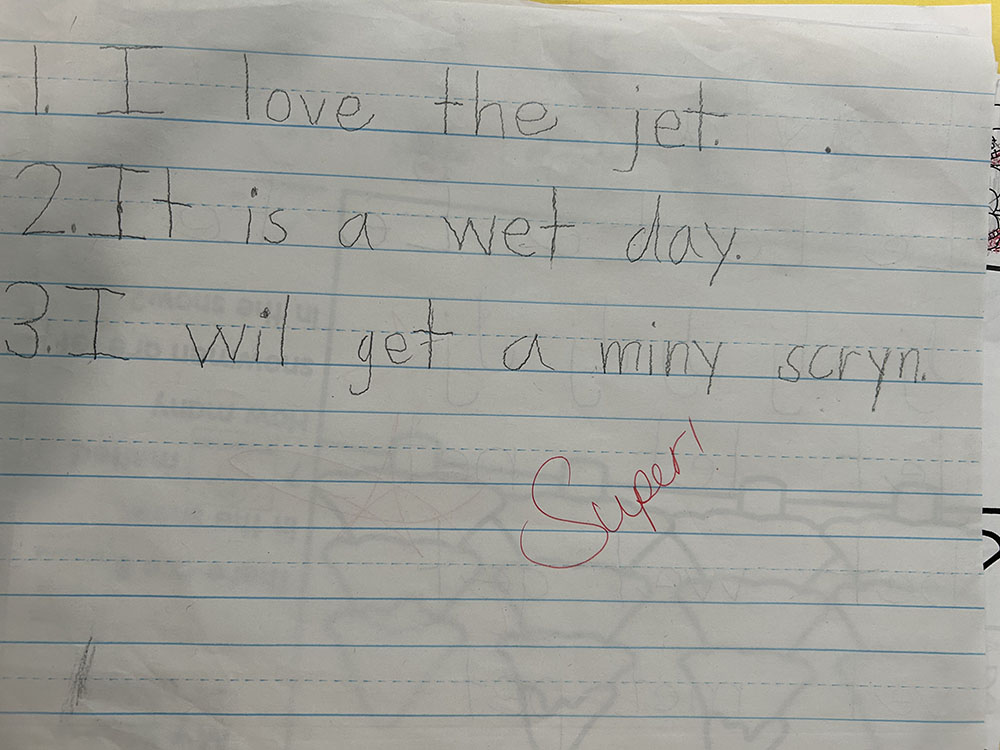 1. I love the jet. .
2. It is a wet day.
3. I wil get a miny scryn.
Super!